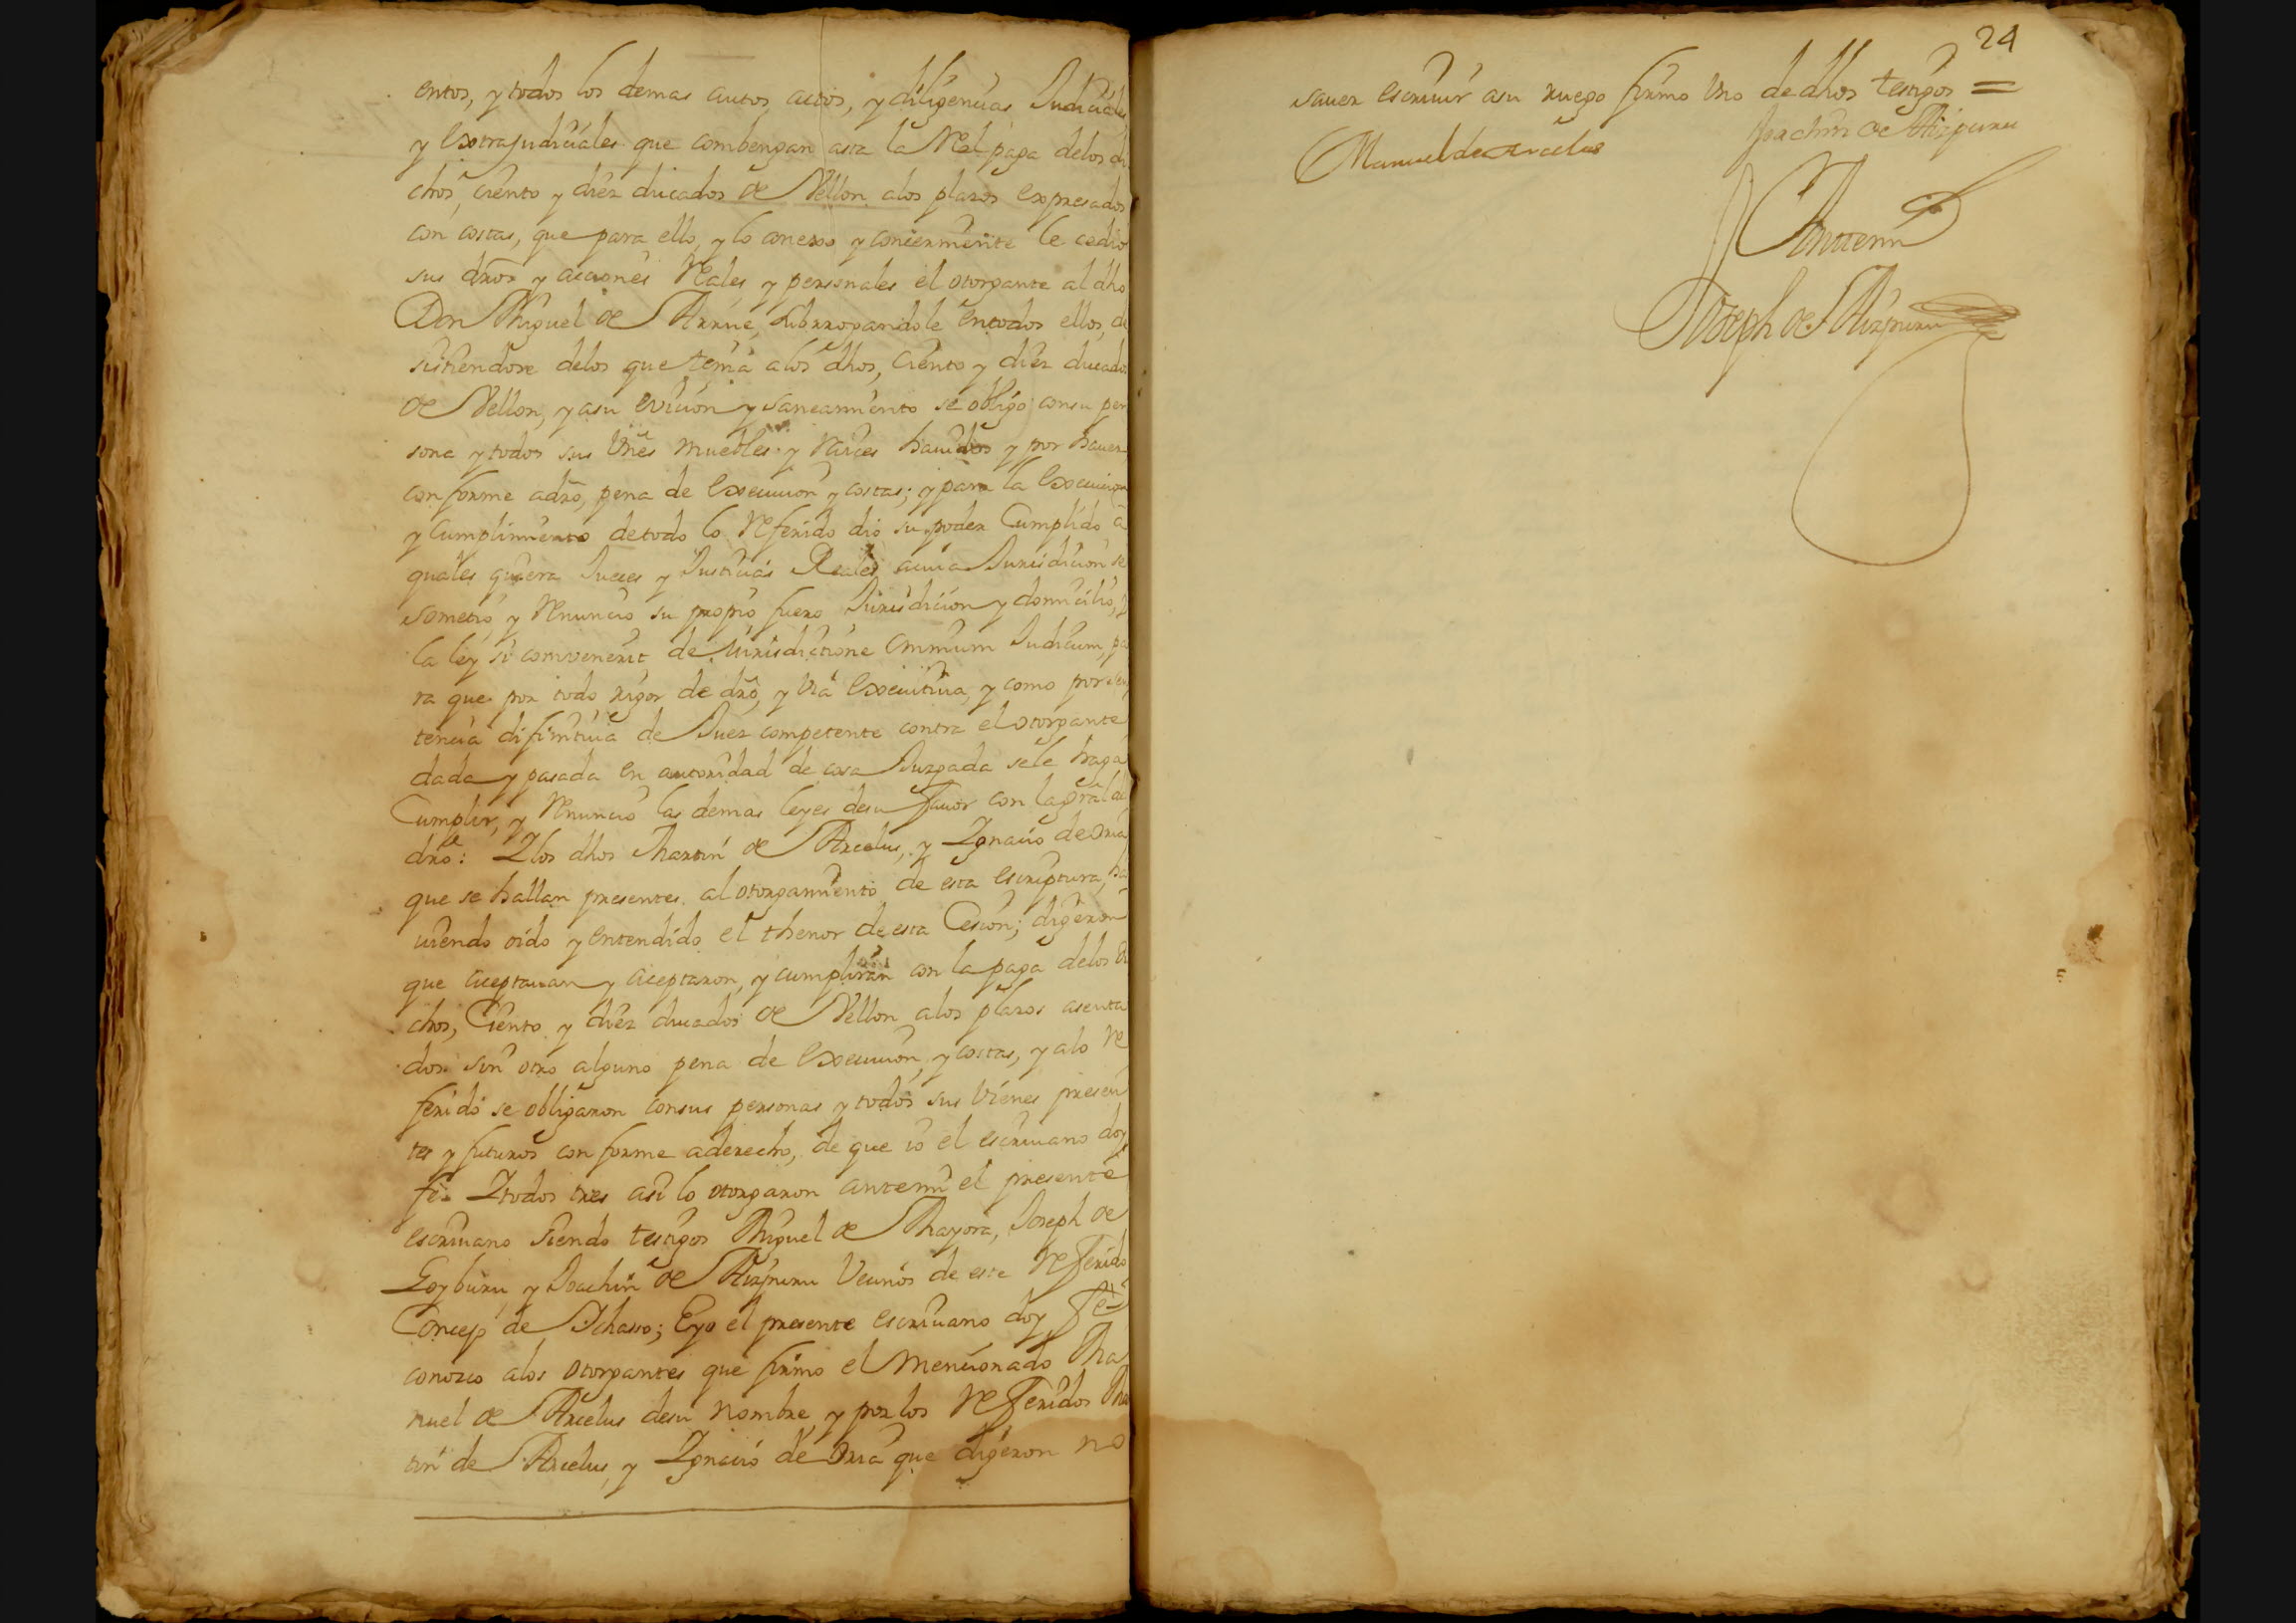 entos, y todos los demas autos, actos, y diligencias Judiciales
y Extrajudiciales que combengan asta la Rel paga delos di
chos, ciento y diez ducados de Vellon alos plazos expresados
con costas, que para ello, y lo conexso y concerniente le cedio
sus dros y acciones Reales y personales el otorgante al dho
Don Miguel de Arrue, subrrogandole en todos ellos, de
sistiendose delos que tenia alos dhos, ciento y diez ducados
de Vellon, y asu evicion y saneamiento se obligo consu per
sona y todos sus vnes muebles y raices hauidos y por hauer
conforme adro, pena de execucion y costas; y para la execucion
y cumplimiento detodo lo Referido dio su poder Cumplido a
quales quiera Jueces y Justicias Reales acuia Jurisdicion se
sometio y Renuncio su propio fuero Jurisdicion y domicilio, y
la ley si convenerit de Jurisdictione omnium Judicum, pa
ra que por todo rigor de dro, y via executiua, y como por sen
tencia difinitiua de Juez competente contra el otorgante
dada y pasada en autoridad de cosa Juzgada sele haga
Cumplir, y Renuncio las demas leyes desu fauor con la gral del
dro: Y los dhos Martin de Arcelus, y Ygnacio de Oria
que se hallan presentes al otorgamiento de esta escriptura, ha
uiendo oido y entendido el thenor de esta Cesion; digeron
que aceptauan y aceptaron, y cumpliran con la paga delos di
chos, Ciento y diez ducados de Vellon alos plazos asenta
dos sin otro alguno pena de execucion, y costas, y alo Re
ferido se obligaron consus personas y todos sus vienes presen
tes y futuros conforme aderecho, de que io el escriuano doy
fe. Y todos tres asi lo otorgaron antemi el presente
escriuano siendo testigos Miguel de Mayora, Joseph de
Goyburu, y Joachin de Aizpuru Vecinos de este Referido
Concejo de Ichaso; Eyo el presente escriuano doy fe
conozco alos otorgantes que firmo el mencionado Ma
nuel de Arcelus desu nombre, y por los Referidos Mar
tin de Arcelus, y Ygnacio de Oria que digeron no
24
sauer escriuir asu ruego firmo vno de dhos testigos =
Manuel de arcelus
Joachin de Aizpuru
Antemi
Joseph de Aizpuru